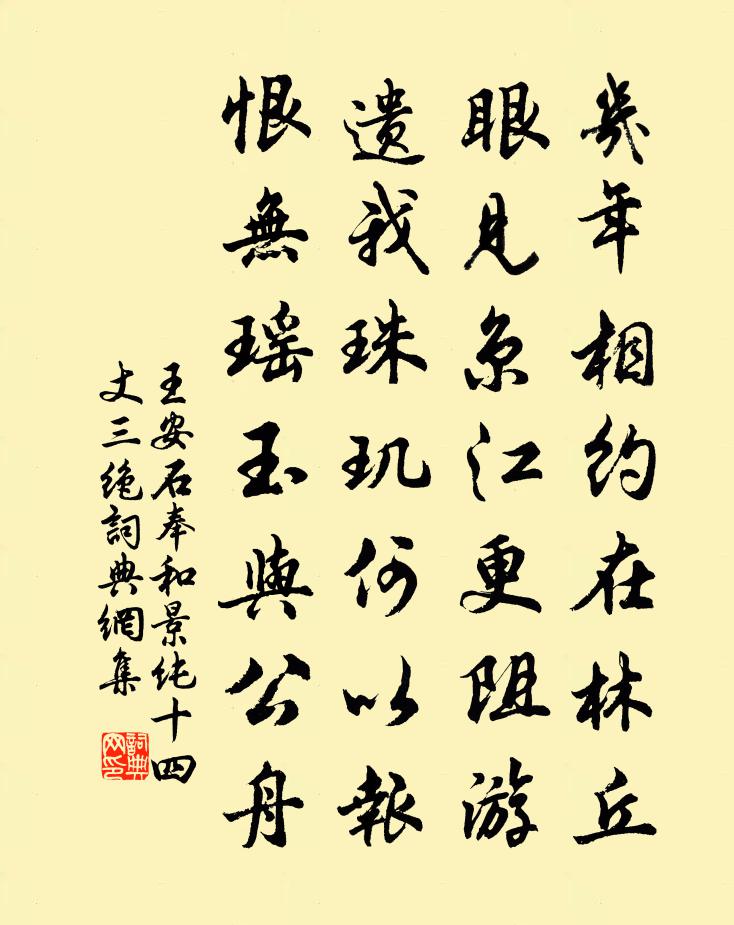 幾年相約在林丘
眼見京江更阻游
遺我珠玑何以報
恨無瑶玉與公舟
王安石奉和景纯十四
丈三绝詞典網集
詞典網印